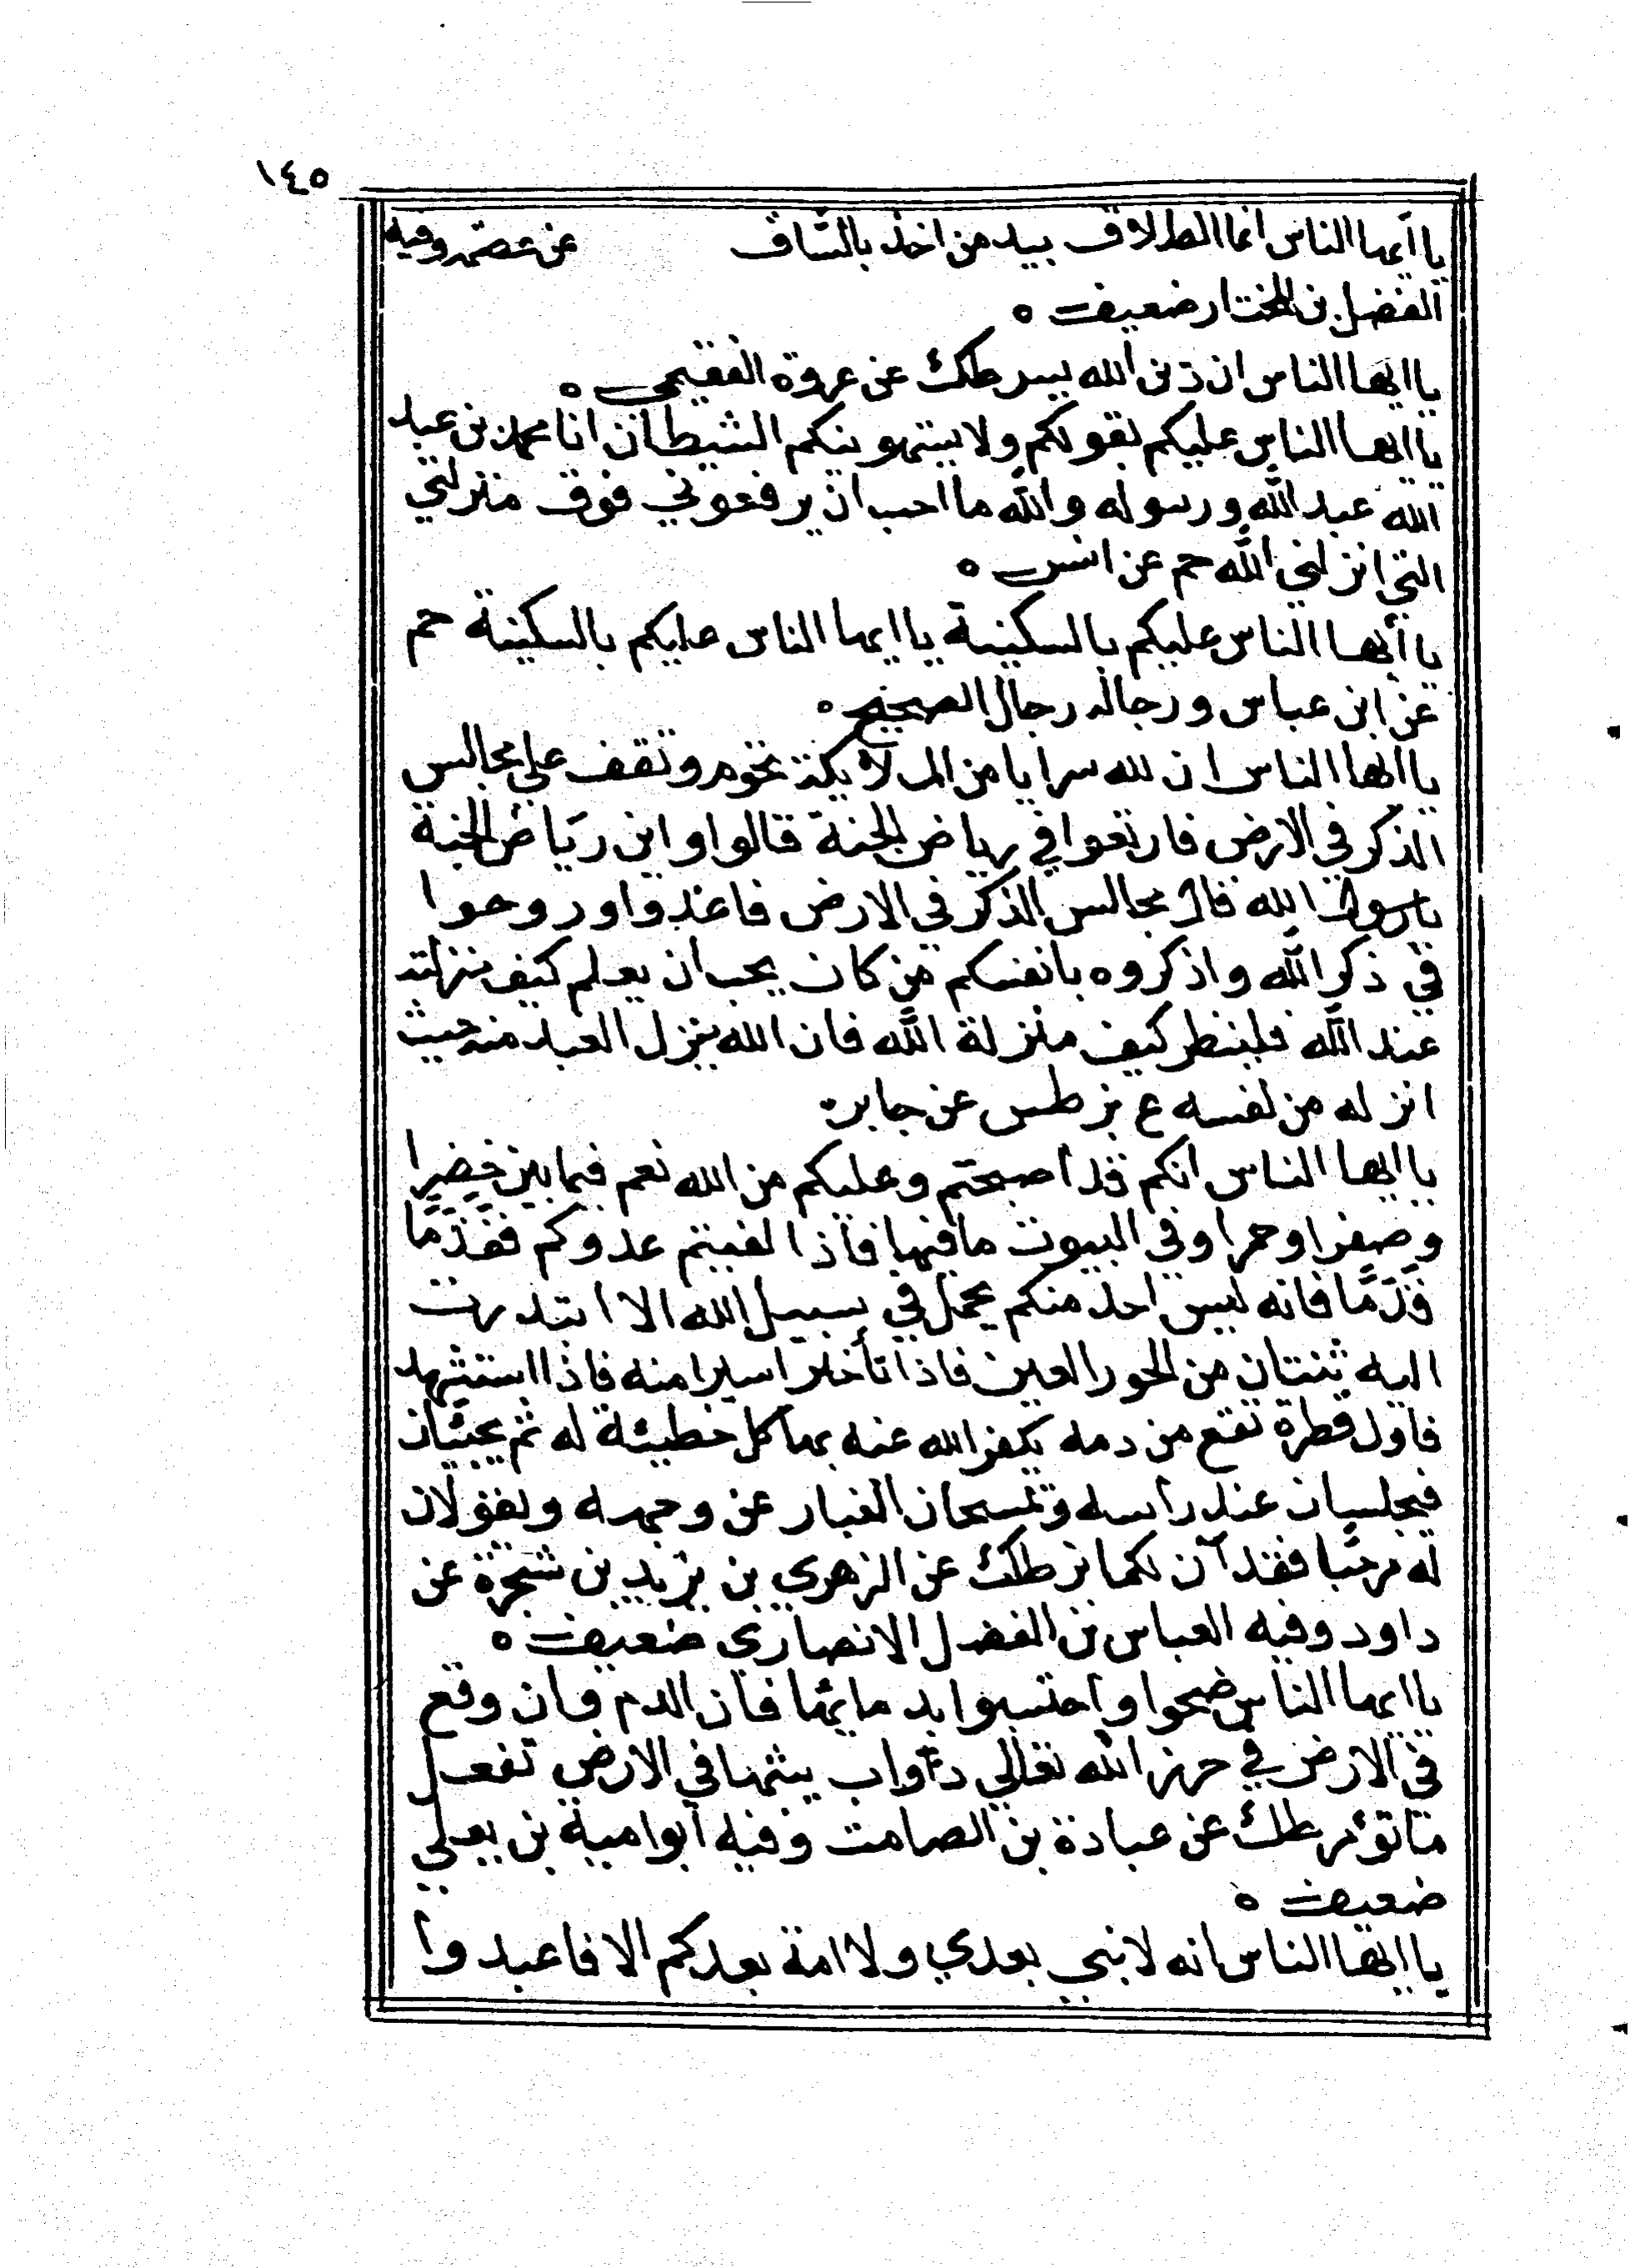 ١٤٥
يا أيها الناس انما الطلاق بيد من اخذ بالساق عن عصمة وفيه
الفضل بن المختار ضعيف ه
يا ايها الناس ان دين الله يسر طك عن عروة الفقيمي ه
يا ايها الناس عليكم بقولكم ولا يستهوينكم الشيطان انا محمد بن عبد
الله عبد الله ورسوله والله ما احب ان يرفعوني فوق منزلتي
التي انزلني الله حم عن انس ه
يا أيها الناس عليكم بالسكينة يا ايها الناس عليكم بالسكينة حم
عن ابن عباس ورجاله رجال الصحيح ه
يا ايها الناس ان لله سرايا من الملائكة تحوم وتقف على مجالس
الذكر في الارض فارتعوا في رياض الجنة قالوا واين رياض الجنة
يا رسول الله قال مجالس الذكر في الارض فاغدوا وروحوا
في ذكر الله واذكروه بانفسكم من كان يحب ان يعلم كيف منزلته
عند الله فلينظر كيف منزلة الله فان الله ينزل العبد منه حيث
انزله من نفسه ع بز طس عن جابر
يا ايها الناس انكم قد اصبحتم وعليكم من الله نعم فيما بين خضرا
وصفرا وحمرا وفي البيوت ما فيها فاذا لقيتم عدوكم فقدما
قدما فانه ليس احد منكم يحمل في سبيل الله الا ابتدرت
اليه ثنتان من الحور العين فاذا تأخر استترا منه فاذا استشهد
فاول قطرة تقع من دمه يكفر الله عنه بها كل خطيئة له ثم يجيئان
فيجلسان عند رأسه وتمسحان الغبار عن وجهه ويقولان
له مرحبا فقد آن لكما بز طك عن الزهري بن يزيد بن شجرة عن
داود وفيه العباس بن الفضل الانصاري ضعيف ه
يا ايها الناس ضحوا واحتسبوا بدمائها فان الدم وان وقع
في الارض في حرز الله تعالى دواب يبثها في الارض تفعل
ما تؤمر طك عن عبادة بن الصامت وفيه ابو امية بن يعلى
ضعيف ه
يا ايها الناس انه لا نبي بعدي ولا امة بعدكم الا فاعبدوا